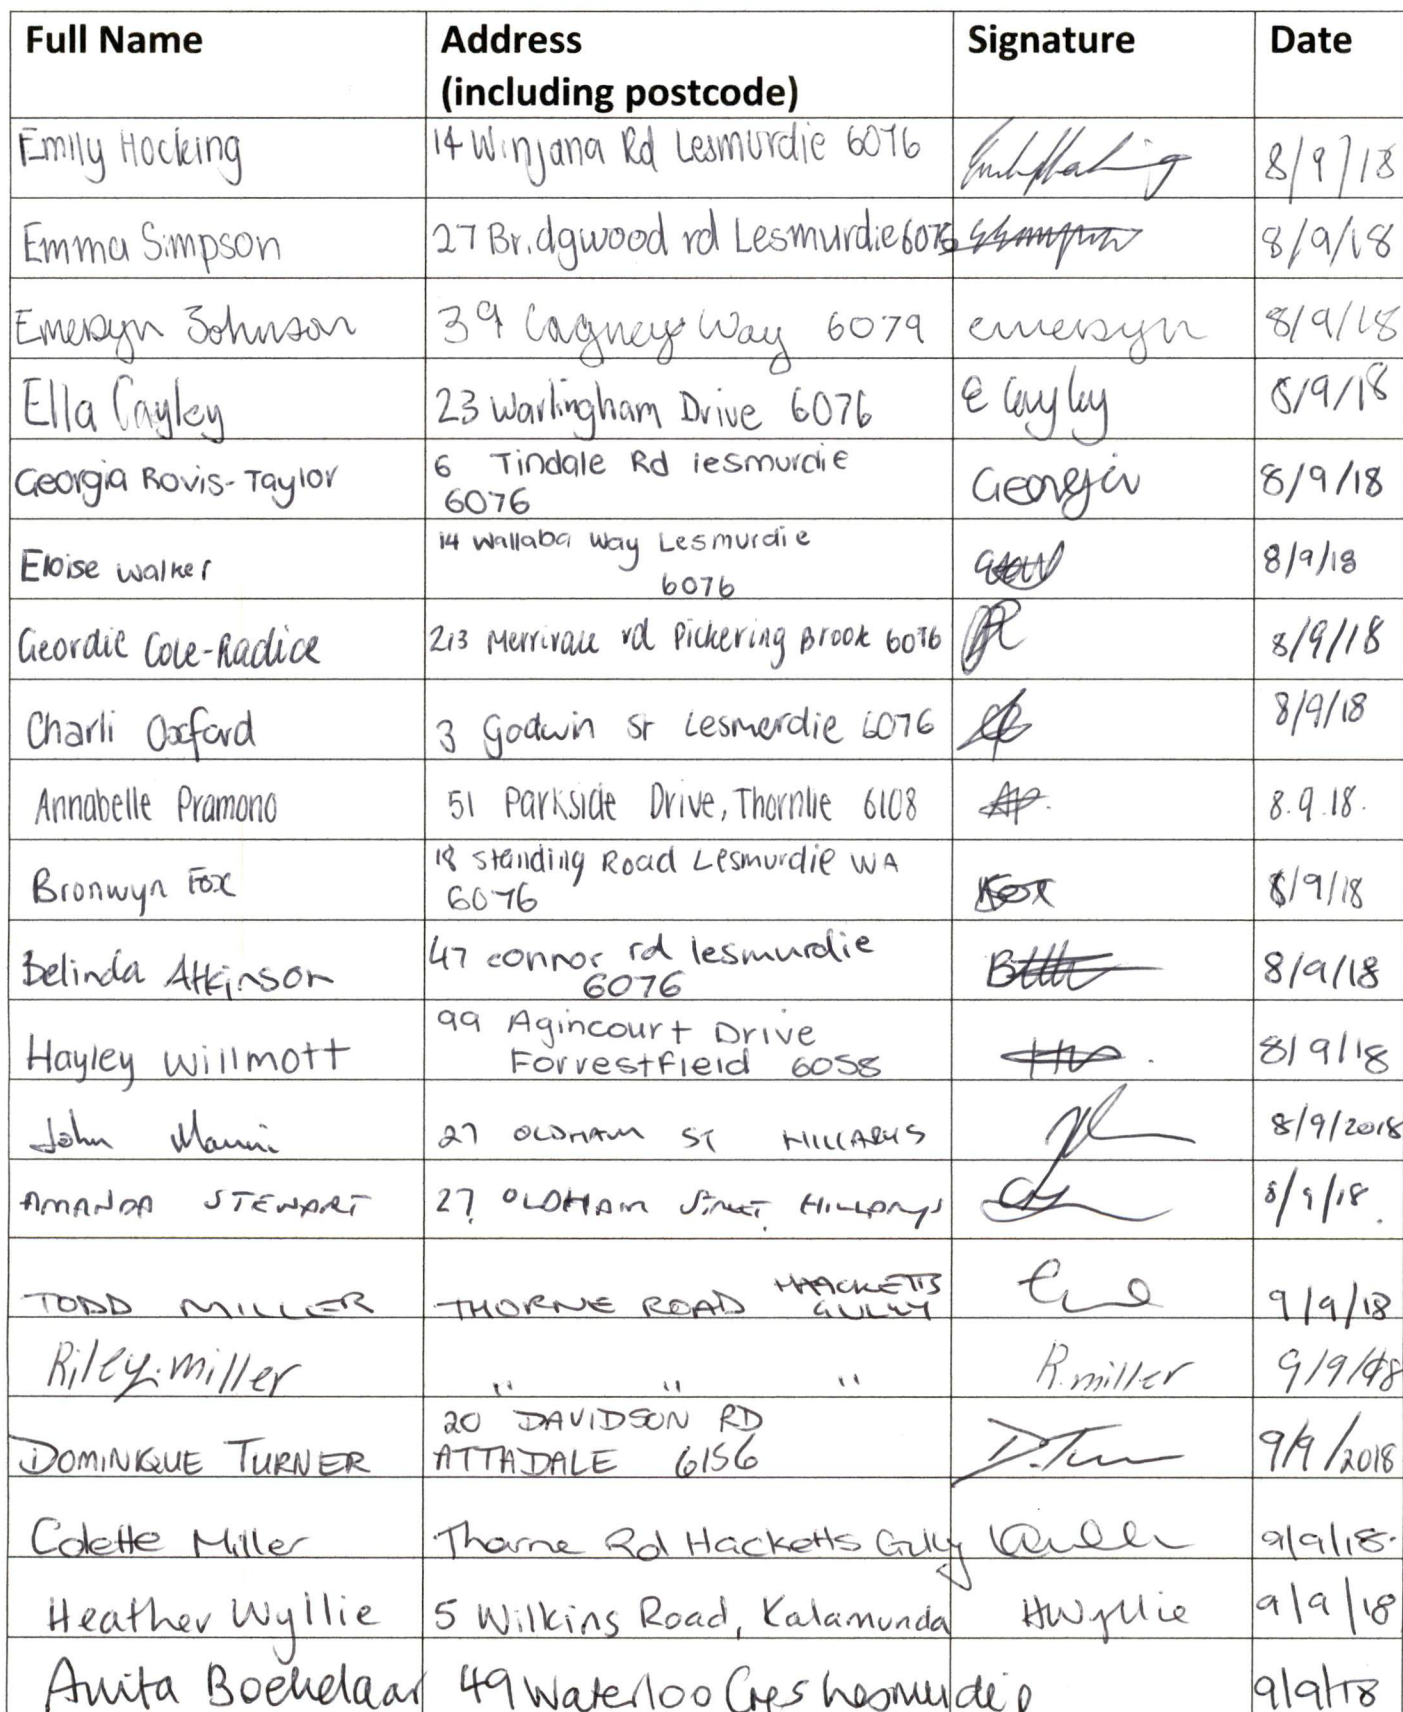 Full Name Address Signature Date
(including postcode)
Emily Hocking 14 Winjana Rd Lesmurdie 6076 8/9/18
Emma Simpson 27 Bridgwood rd Lesmurdie 6076 8/9/18
Emersyn Johnson 39 Cagney Way 6079 emersyn 8/9/18
Ella Cayley 23 Warlingham Drive 6076 E Cayley 8/9/18
Georgia Rovis-Taylor 6 Tindale Rd lesmurdie Georgia 8/9/18
6076
Eloise Walker 14 Wallaba Way Lesmurdie 8/9/18
6076
Geordie Cole-Radice 213 Merrivale rd Pickering Brook 6076 8/9/18
Charli Oxford 3 Godwin St Lesmerdie 6076 8/9/18
Annabelle Pramono 51 Parkside Drive, Thornlie 6108 AP. 8.9.18.
Bronwyn Fox 18 Standing Road Lesmurdie WA Fox 8/9/18
6076
Belinda Atkinson 47 connor rd lesmurdie 8/9/18
6076
Hayley Willmott 99 Agincourt Drive 8/9/18
Forrestfield 6058
John Manni 27 OLDHAM ST HILLARYS 8/9/2018
AMANDA STEWART 27 OLDHAM Street HILLARYS 8/9/18.
TODD MILLER THORNE ROAD HACKETTS 9/9/18
GULLY
Riley Miller " " " R.miller 9/9/18
DOMINIQUE TURNER 20 DAVIDSON RD D.Turner 9/9/2018
ATTADALE 6156
Colette Miller Thorne Rd Hacketts Gully 9/9/18.
Heather Wyllie 5 Wilkins Road, Kalamunda HWyllie 9/9/18
Anita Boekelaar 49 Waterloo Cres Lesmurdie 9/9/18